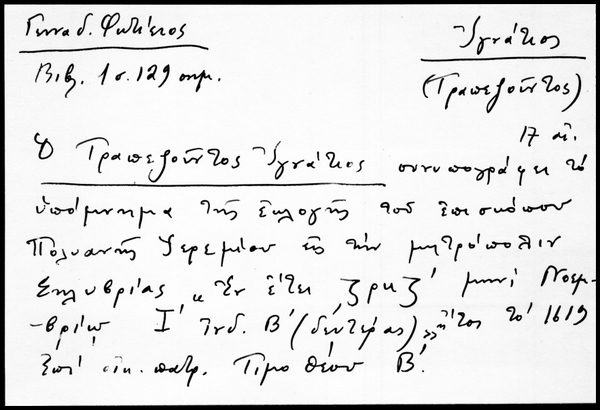 Γενναδ. Φωτιέιος
Ἰγνάτιος
Βιβ. 1 σ. 129 σημ.
(Τραπεζοῦντος)
17 αἰ.
Ὁ Τραπεζοῦντος Ἰγνάτιος συνυπογράφει τό
ὑπόμνημα τῆς ἐκλογῆς τοῦ ἐπισκόπου
Πολυανῆς Ἱερεμίου εἰς τήν μητρόπολιν
Σηλυβρίας "Ἐν ἔτει ζρκζ' μηνί Νοεμ-
-βρίῳ Ι' Ἰνδ. Β' (δευτέρας)" ἔτος τό 1619
ἐπί οἰκ. πατρ. Τιμοθέου Β'.